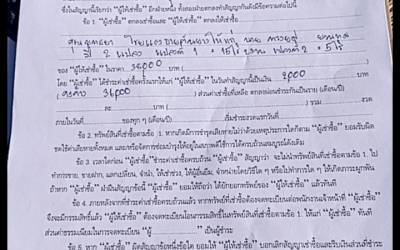 ซึ่งในสัญญานี้เรียกว่า "ผู้เช่าซื้อ" อีกฝ่ายหนึ่ง ทั้งสองฝ่ายตกลงทำสัญญากันดังมีข้อความต่อไปนี้
ข้อ 1. "ผู้เช่าซื้อ" ตกลงเช่าซื้อและ "ผู้ให้เช่าซื้อ" ตกลงให้เช่าซื้อ
2 แปลง แปลงที่ 1 15ไร่ แปลงที่ 2 5ไร่
ของ "ผู้ให้เช่าซื้อ" ในราคา 38,000 บาท
โดย "ผู้เช่าซื้อ" ได้ชำระค่าเช่าซื้อครั้งแรกให้แก่ "ผู้ให้เช่าซื้อ" ในวันทำสัญญานี้เป็นเงิน 2,000
( 36,000 ) ส่วนค่าเช่าซื้อที่เหลือ ตกลงผ่อนชำระกันเป็นราย (เดือน/ปี)
ละ บาท ( ) รวม งวด
ภายในวันที่ ของทุก ๆ (เดือน/ปี) เริ่มชำระงวดแรกวันที่
ข้อ 2. ทรัพย์สินที่เช่าซื้อตามข้อ 1. หากเกิดมีการชำรุดเสียหายไม่ว่าด้วยเหตุประการใดก็ตาม "ผู้เช่าซื้อ" ยอมรับผิด
ชดใช้ค่าเสียหายทั้งหมด และหรือจัดการซ่อมบำรุงให้อยู่ในสภาพดีใช้การได้ครบถ้วนสมบูรณ์ดังเดิม
ข้อ 3. เวลาใดก่อน "ผู้เช่าซื้อ" ชำระค่าเช่าซื้อครบถ้วน "ผู้เช่าซื้อ" สัญญาว่า จะไม่นำทรัพย์สินที่เช่าซื้อตามข้อ 1. ไป
ทำการขาย, ขายฝาก, แลกเปลี่ยน, จำนำ, ให้เช่าช่วง, ให้ผู้อื่นยืม, จำหน่ายโดยวิธีใด ๆ หรือไปทำการใด ๆ ให้เกิดภาระผูกพัน
ถ้าหาก "ผู้เช่าซื้อ" ฝ่าฝืนสัญญาข้อนี้ "ผู้เช่าซื้อ" ยอมให้ถือว่า ได้ยักยอกทรัพย์ของ "ผู้ให้เช่าซื้อ" แล้วทันที
ข้อ 4. ภายหลังจากที่ชำระค่าเช่าซื้อครบถ้วนแล้ว หากทรัพย์ที่เช่าซื้อต้องจดทะเบียนต่อพนักงานเจ้าหน้าที่ "ผู้เช่าซื้อ"
จึงจะมีกรรมสิทธิ์ได้ "ผู้ให้เช่าซื้อ" ต้องจดทะเบียนโอนกรรมสิทธิ์ในทรัพย์สินที่เช่าซื้อตามข้อ 1. ให้แก่ "ผู้เช่าซื้อ" ทันที
ส่วนค่าธรรมเนียมในการจดทะเบียน "ผู้ " เป็นผู้ชำระ
ข้อ 5. หาก "ผู้เช่าซื้อ" ผิดสัญญาข้อหนึ่งข้อใด ยอมให้ "ผู้ให้เช่าซื้อ" บอกเลิกสัญญาเช่าซื้อและริบเงินส่วนที่ชำระ